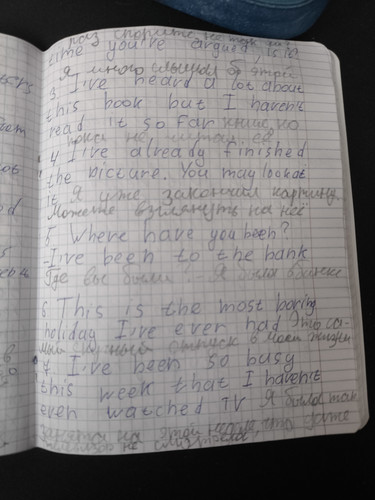 раз спорите, не так ли?
time you've argued, is it?
Я много слышал об этой
3 I've heard a lot about
this book but I haven't
read it so far книге, но
пока не читал её
4 I've already finished
the picture. You may look at
it Я уже закончил картину.
Можете взглянуть на неё
5 Where have you been?
-I've been to the bank
Где вы были? - Я была в банке
6 This is the most boring
holiday I've even had Это са-
мый скучный отпуск в моей жизни
7 I've been so busy
this week that I haven't
even watched TV Я была так
занята на этой неделе, что даже
телевизор не смотрела